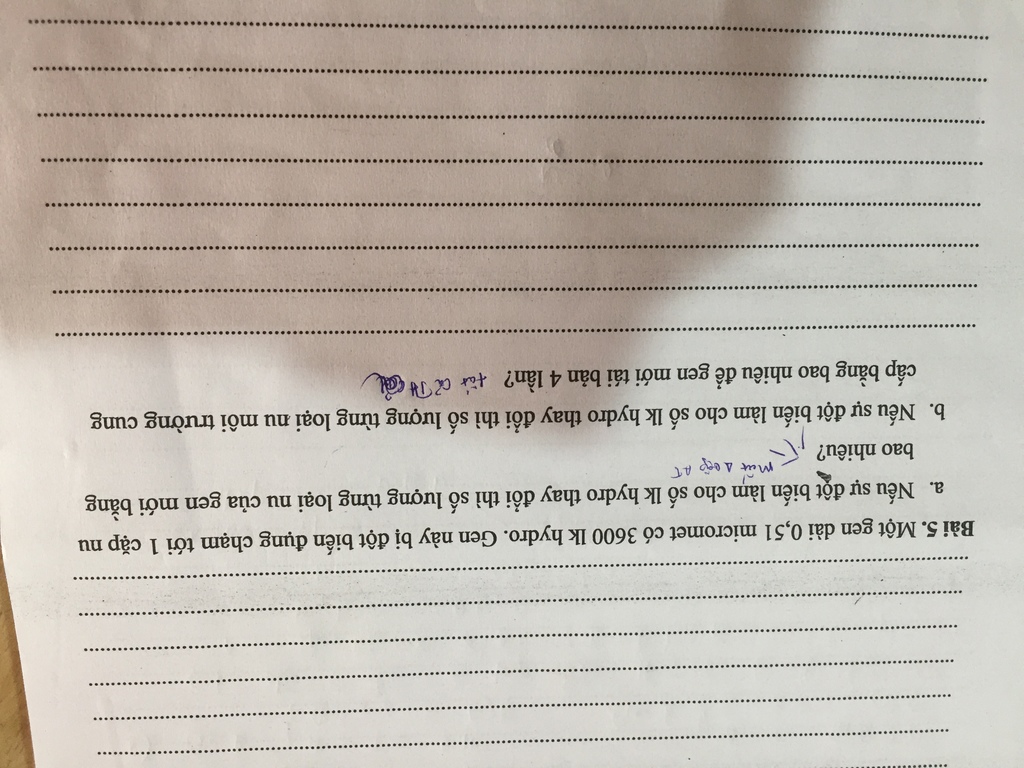 Bài 5. Một gen dài 0,51 micromet có 3600 lk hydro. Gen này bị đột biến đụng chạm tới 1 cặp nu
a. Nếu sự đột biến làm cho số lk hydro thay đổi thì số lượng từng loại nu của gen mới bằng
mất 1 cặp AT
bao nhiêu?
b. Nếu sự đột biến làm cho số lk hydro thay đổi thì số lượng từng loại nu môi trường cung
cấp bằng bao nhiêu để gen mới tái bản 4 lần? tất cả TH